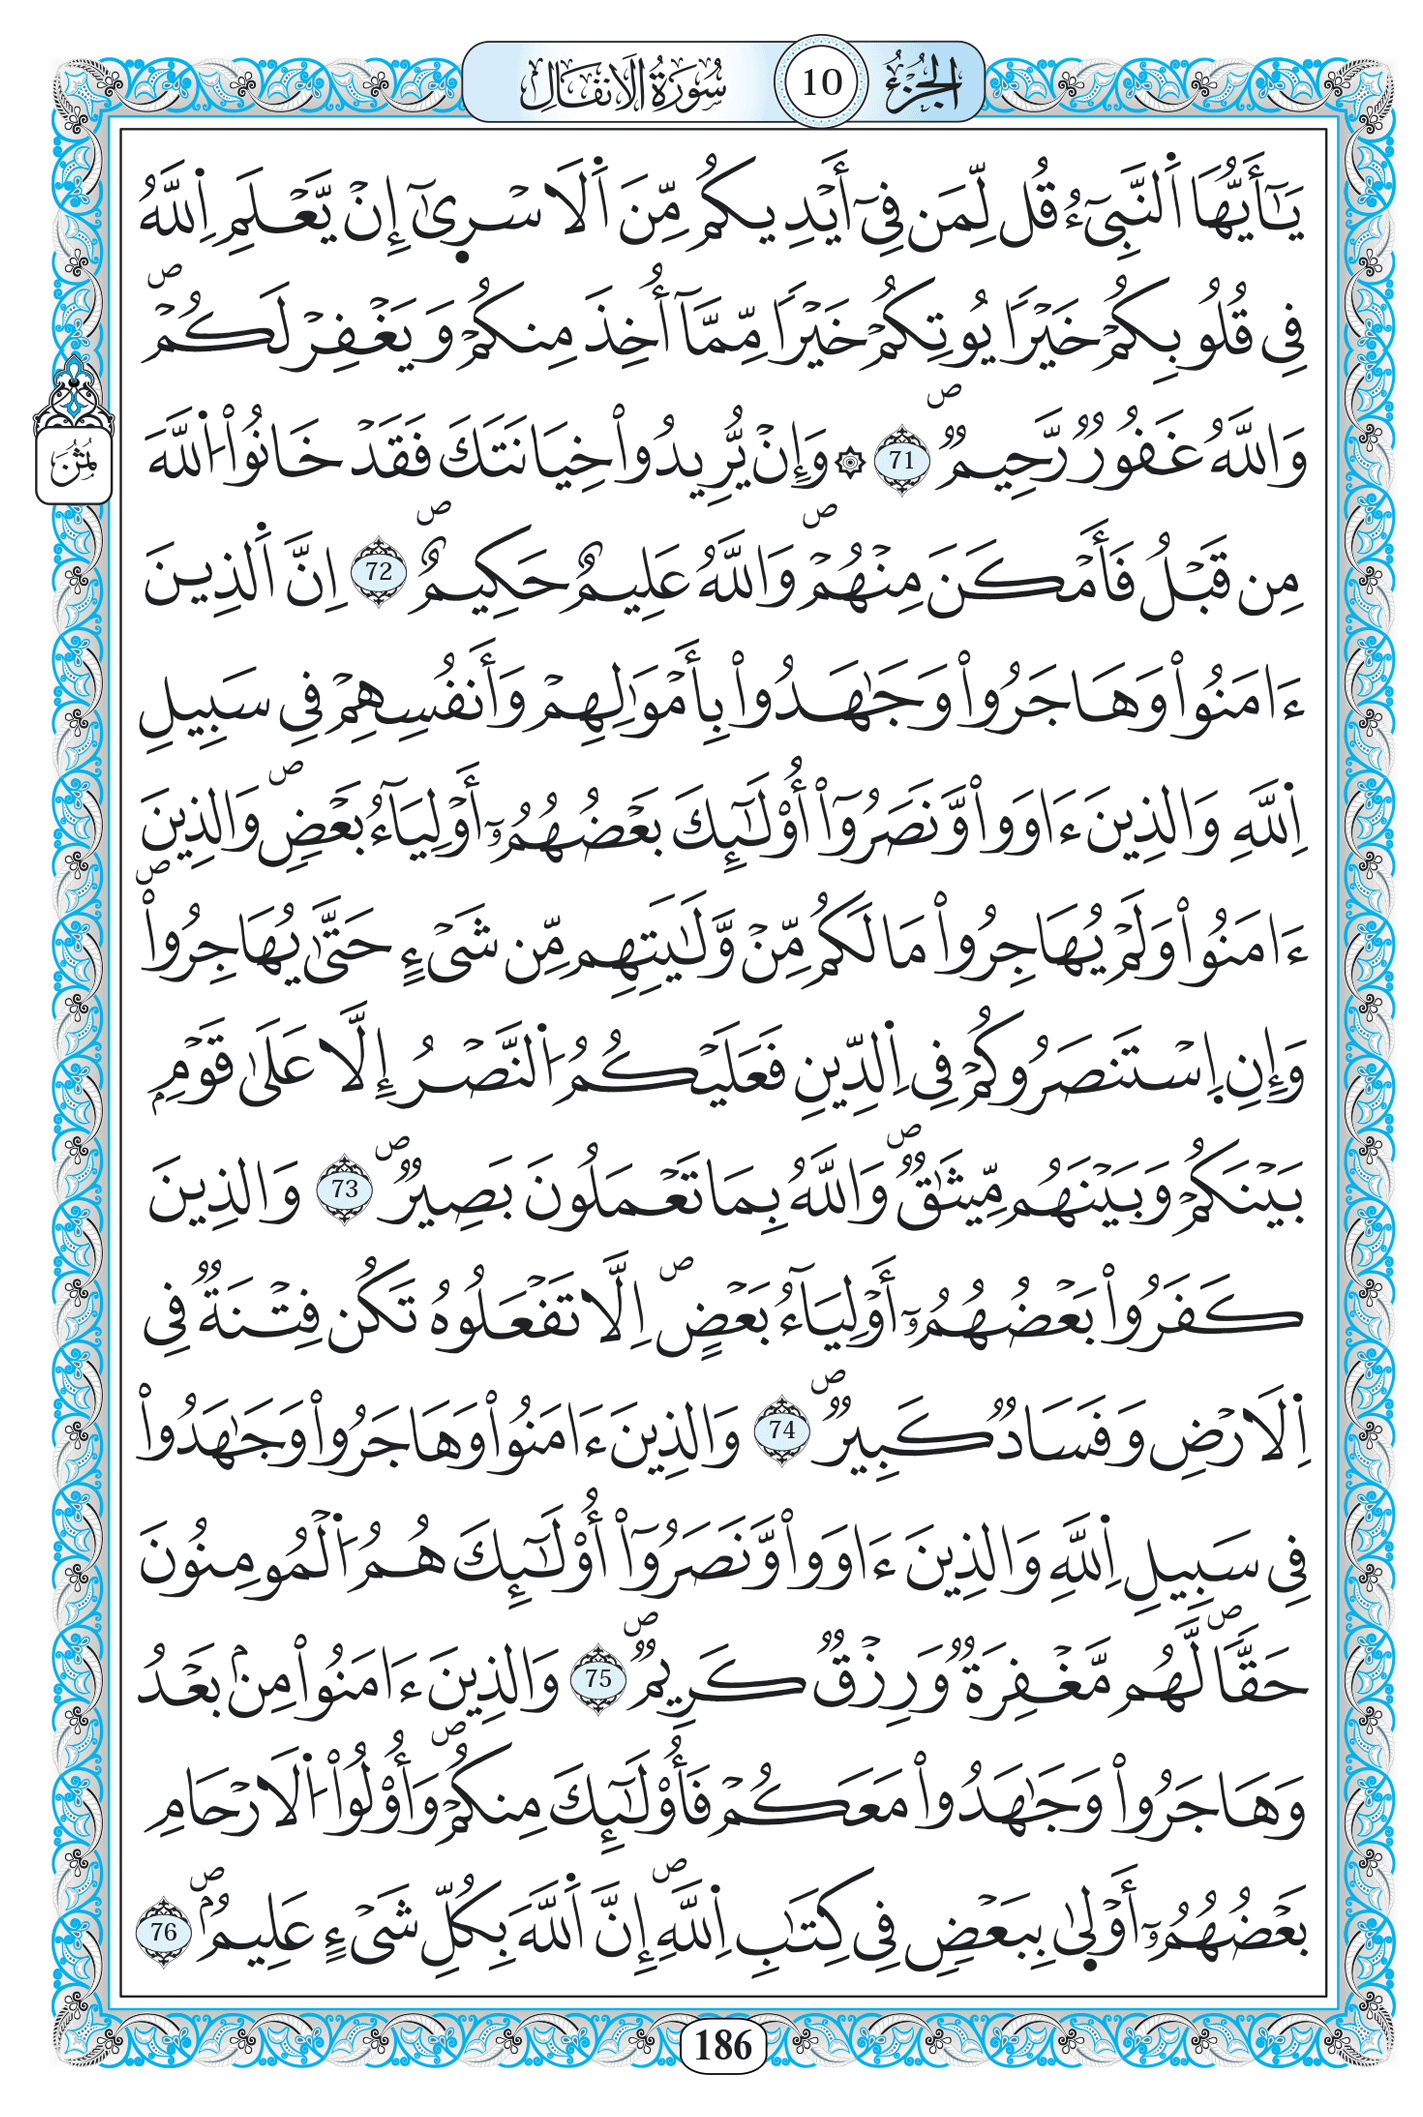 الجزء 10 سورة الانفال
يَٰٓأَيُّهَا اَ۬لنَّبِےٓءُ قُل لِّمَن فِےٓ أَيْدِيكُم مِّنَ اَ۬لَاسْر۪يٰٓ إِنْ يَّعْلَمِ اِ۬للَّهُ
فِے قُلُوبِكُمْ خَيْرًا يُوتِكُمْ خَيْرًا مِّمَّآ أُخِذَ مِنكُمْ وَيَغْفِرْ لَكُمْۖ
وَاللَّهُ غَفُورٌ رَّحِيمٌۖ 71 ۞ وَإِنْ يُّرِيدُواْ خِيَانَتَكَ فَقَدْ خَانُواْ اُ۬للَّهَ
مِن قَبْلُ فَأَمْكَنَ مِنْهُمْۖ وَاللَّهُ عَلِيمٌ حَكِيمٌۖ 72 اِنَّ اَ۬لذِينَ
ءَامَنُواْ وَهَاجَرُواْ وَجَٰهَدُواْ بِأَمْوَٰلِهِمْ وَأَنفُسِهِمْ فِے سَبِيلِ
اِ۬للَّهِ وَالذِينَ ءَاوَواْ وَّنَصَرُوٓاْ أُوْلَٰٓئِكَ بَعْضُهُمُۥٓ أَوْلِيَآءُ بَعْضٖۖ وَالذِينَ
ءَامَنُواْ وَلَمْ يُهَاجِرُواْ مَا لَكُم مِّنْ وَّلَٰيَتِهِم مِّن شَےْءٍ حَتَّىٰ يُهَاجِرُواْۖ
وَإِنِ اِ۪سْتَنصَرُوكُمْ فِے اِ۬لدِّينِ فَعَلَيْكُمُ اُ۬لنَّصْرُ إِلَّا عَلَىٰ قَوْمِۢ
بَيْنَكُمْ وَبَيْنَهُم مِّيثَٰقٌۖ وَاللَّهُ بِمَا تَعْمَلُونَ بَصِيرٌۖ 73 وَالذِينَ
كَفَرُواْ بَعْضُهُمُۥٓ أَوْلِيَآءُ بَعْضٍۖ اِلَّا تَفْعَلُوهُ تَكُن فِتْنَةٌ فِے
اِ۬لَارْضِ وَفَسَادٌ كَبِيرٌۖ 74 وَالذِينَ ءَامَنُواْ وَهَاجَرُواْ وَجَٰهَدُواْ
فِے سَبِيلِ اِ۬للَّهِ وَالذِينَ ءَاوَواْ وَّنَصَرُوٓاْ أُوْلَٰٓئِكَ هُمُ اُ۬لْمُومِنُونَ
حَقّاًۖ لَّهُم مَّغْفِرَةٌ وَرِزْقٌ كَرِيمٌۖ 75 وَالذِينَ ءَامَنُواْ مِنۢ بَعْدُ
وَهَاجَرُواْ وَجَٰهَدُواْ مَعَكُمْ فَأُوْلَٰٓئِكَ مِنكُمْۖ وَأُوْلُواْ اُ۬لَارْحَامِ
بَعْضُهُمُۥٓ أَوْل۪يٰ بِبَعْضٍ فِے كِتَٰبِ اِ۬للَّهِۖ إِنَّ اَ۬للَّهَ بِكُلِّ شَےْءٍ عَلِيمُۢۖ 76
ثمن
186